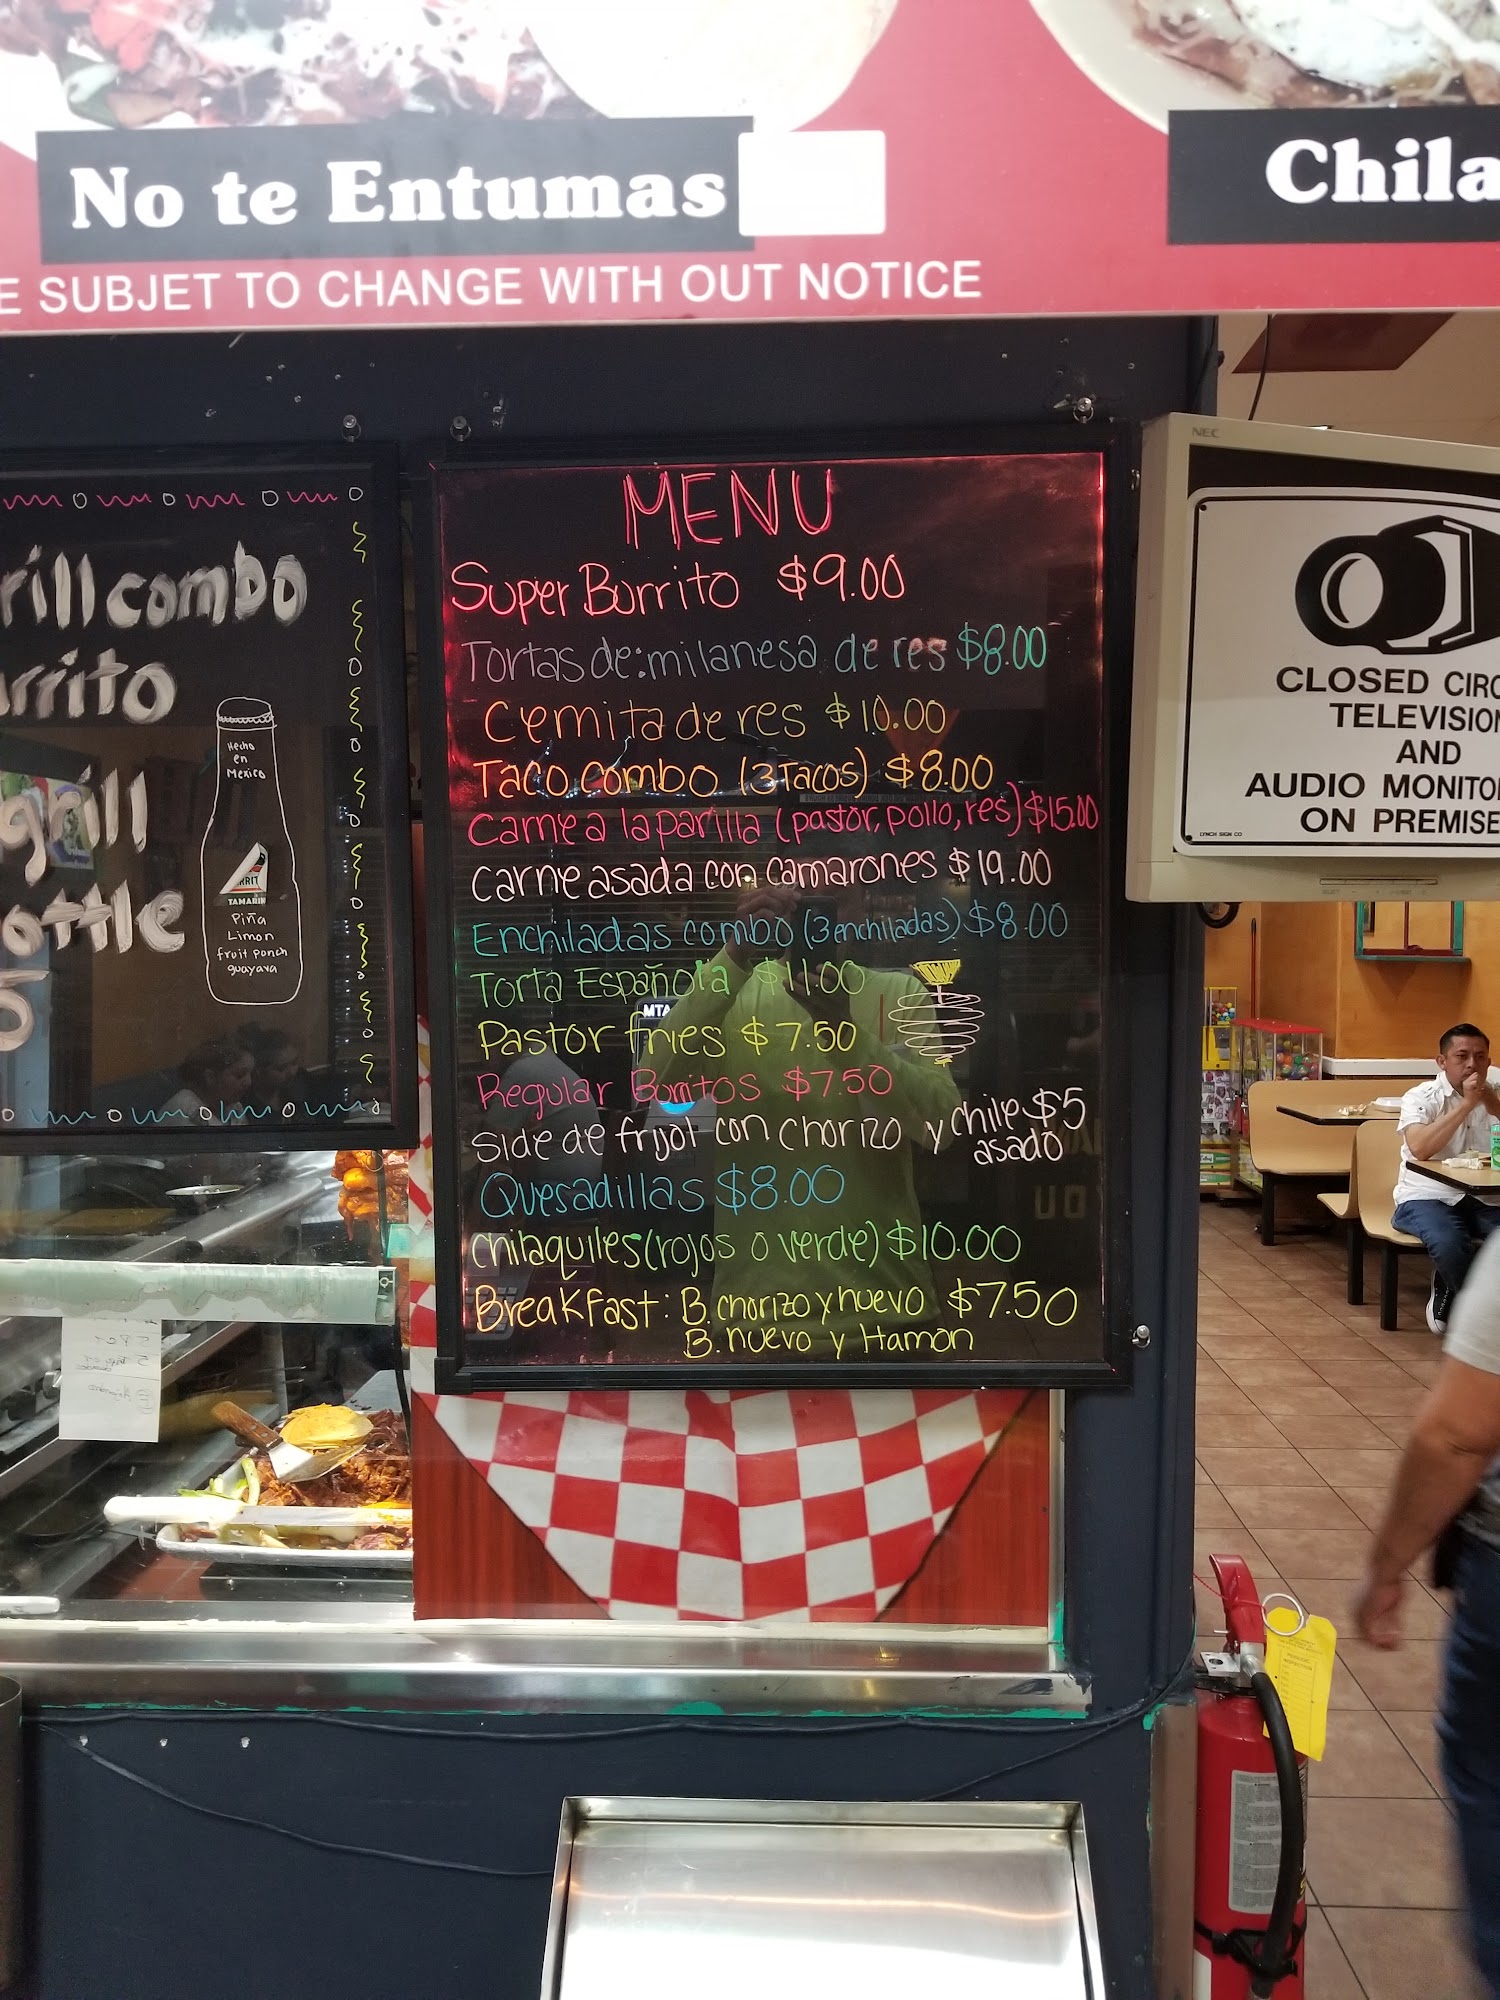 No te Entumas
Chila
E SUBJET TO CHANGE WITH OUT NOTICE
rill combo
rrito
grill
ottle
Hecho
en
Mexico
RRIT
TAMARIN
Piña
Limon
fruit ponch
guayava
MENU
Super Burrito $9.00
Tortas de: milanesa de res $8.00
Cemita de res $10.00
Taco combo (3 Tacos) $8.00
Carne a la parilla (pastor, pollo, res) $15.00
Carne asada con camarones $19.00
Enchiladas combo (3 enchiladas) $8.00
Torta Española $11.00
Pastor fries $7.50
Regular Burritos $7.50
Side de frijol con chorizo y chile $5
asado
Quesadillas $8.00
Chilaquiles (rojos o verde) $10.00
Breakfast: B. chorizo y huevo $7.50
B. huevo y Hamon
NEC
CLOSED CIRC
TELEVISION
AND
AUDIO MONITO
ON PREMISE
LYNCH SIGN CO
MTA